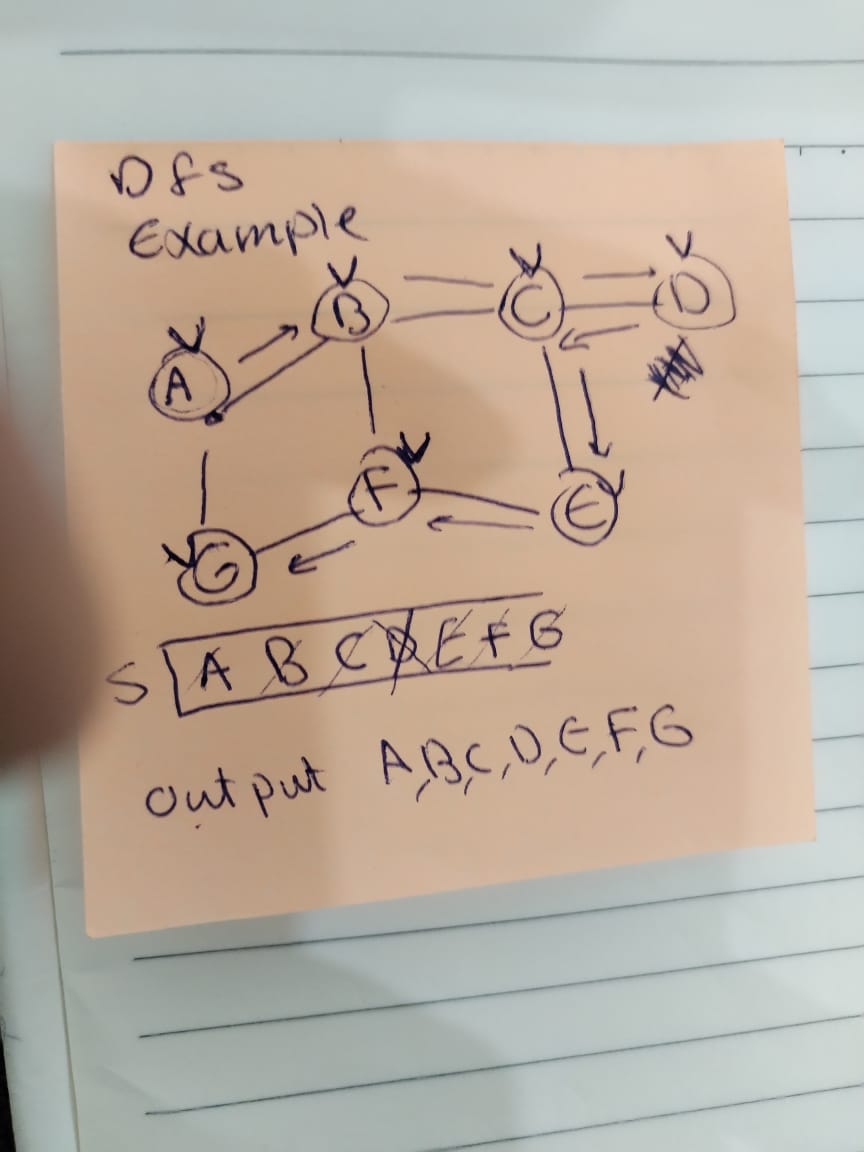 DfS
Example
B C D
A
F
E
G
S A B C D E F G
output A,B,C,D,E,F,G